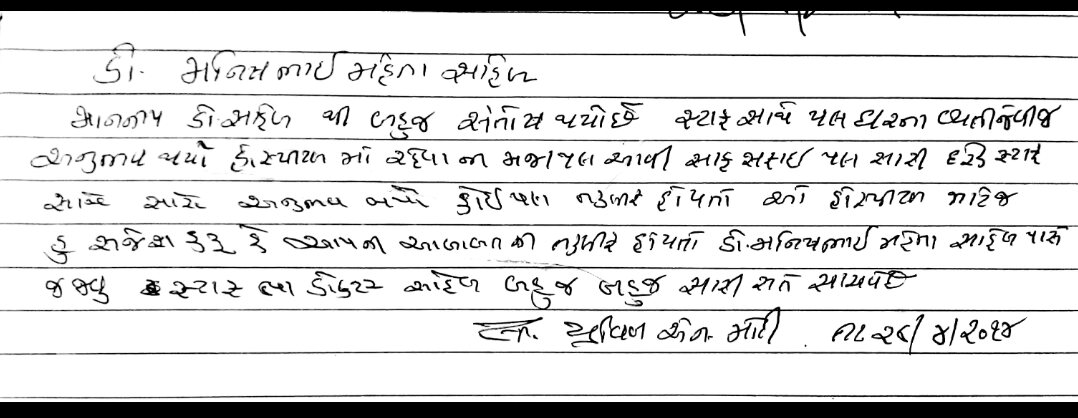 ડો. મનિષભાઈ મહેતા સાહેબ
માનનીય ડો. સાહેબ થી બહુજ સંતોષ થયો છે સ્ટાફ સાથે પણ ઘરના વ્યક્તી જેવોજ
અનુભવ થયો હોસ્પીટલ માં રહેવા ની મજા પણ આવી સાફ સફાઈ પણ સારી દરેક સ્ટાફ
સાથે સારો અનુભવ થયો કોઈ પણ તકલીફ હોયતો આ હોસ્પીટલ માટેજ
હુ કરૂ કે આપને આ બાબત ની તકલીફ હોયતો ડો. મનિષભાઈ મહેતા સાહેબ પાસે
જ જવુ સ્ટાફ તથા ડોકટર સાહેબ બહુજ બહુજ સારી રીતે સાચવે છે
લી. પ્રવિણ એન. મોદી તા. ૨૮/૪/૨૦૨૪